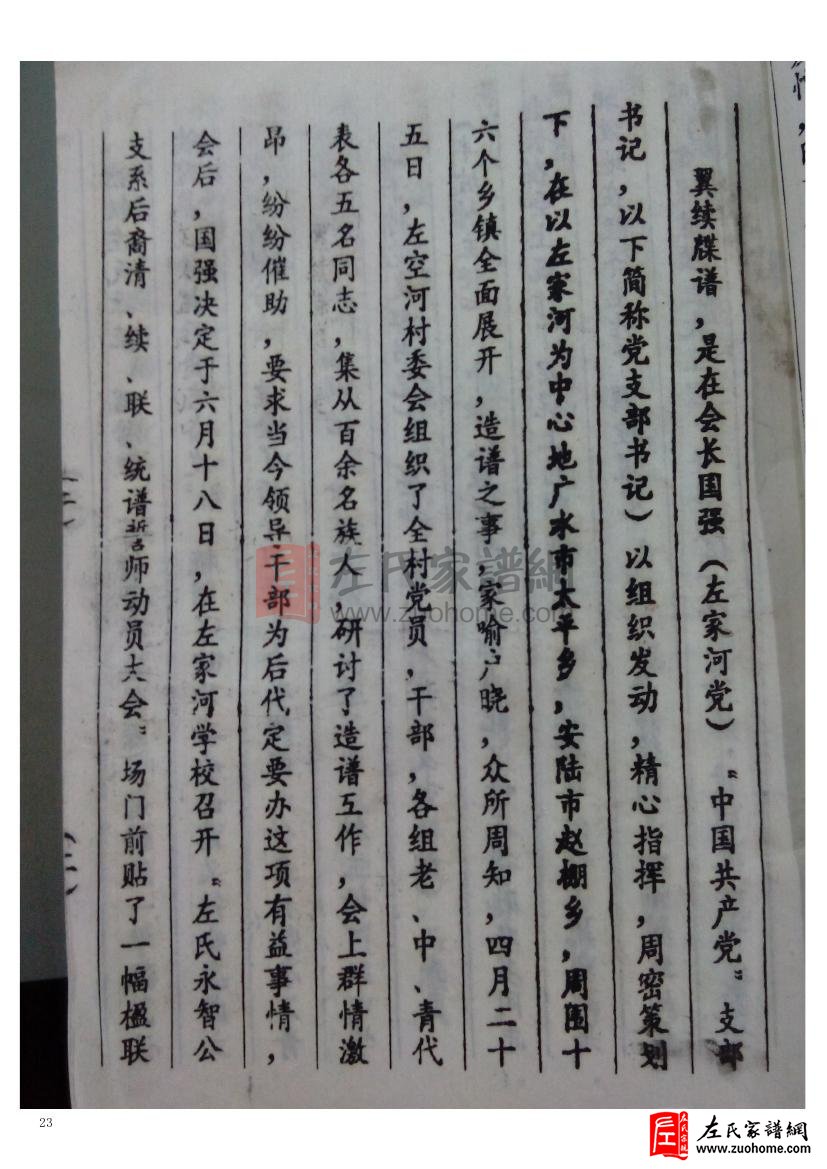 翼续牒谱，是在会长国强（左家河党）“中国共产党”支部
书记，以下简称党支部书记）以组织发动，精心指挥，周密策划
下，在以左家河为中心地广水市太平乡，安陆市赵棚乡，周围十
六个乡镇全面展开，造谱之事，家喻户晓，众所周知，四月二十
五日，左空河村委会组织了全村党员，干部，各组老、中、青代
表各五名同志，集从百余名族人，研讨了造谱互作，会上群情激
昂，纷纷催助，要求当今领导干部为后代定要办这项有益事情，
会后，国强决定于六月十八日，在左家河学校召开“左氏永智公
支系后裔清、续、联、统谱誓师动员大会”场门前贴了一幅楹联
左氏家譜網
www.zuohome.com
23
左氏家譜網
www.zuohome.com